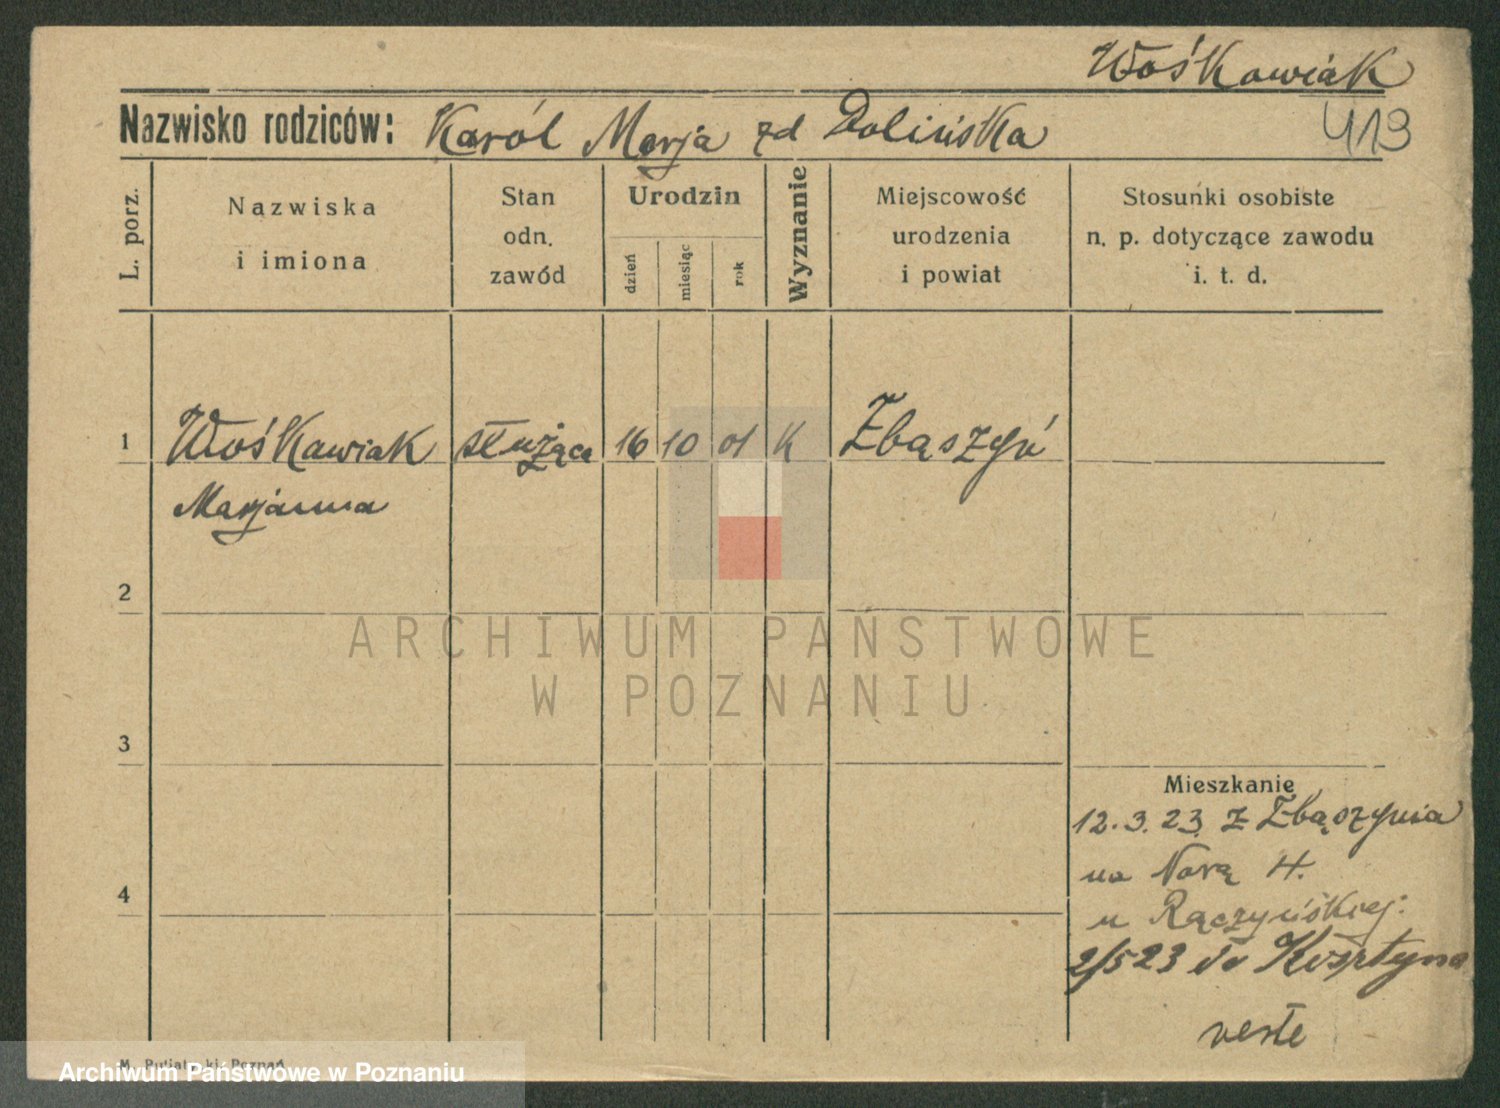 WośKawiaK
Nazwisko rodziców: Karól Marja zd DolińsKa
413
L. porz.
Nazwiska
i imiona
Stan
odn.
zawód
Urodzin
dzień
miesiąc
rok
Wyznanie
Miejscowość
urodzenia
i powiat
Stosunki osobiste
n. p. dotyczące zawodu
i. t. d.
1 WośKawiaK służąca 16 10 01 K Zbąszyń
Marjanna
2
ARCHIWUM PAŃSTWOWE
W POZNANIU
3
Mieszkanie
12.3.23 z Zbąszynia
na Norą 4.
u Rączyńskiej.
4
2/5 23 do
M. Poznań
Archiwum Państwowe w Poznaniu